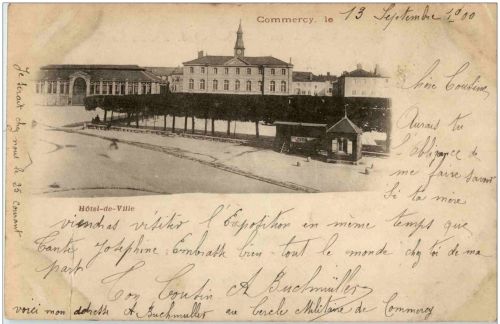 Commercy, le 13 Septembre 1900
Chère Cousine
Aurais tu
l'obligeance de
me faire savoir
Si ta mère
Hôtel-de-Ville
viendras visiter l'Exposition en même temps que
Tante Joséphine. Embrasse bien tout le monde chez toi de ma
part
Ton Cousin A Buchmüller
voici mon adresse A Buchmüller au Cercle Militaire de Commercy
Je serai chez nous le 25 courant